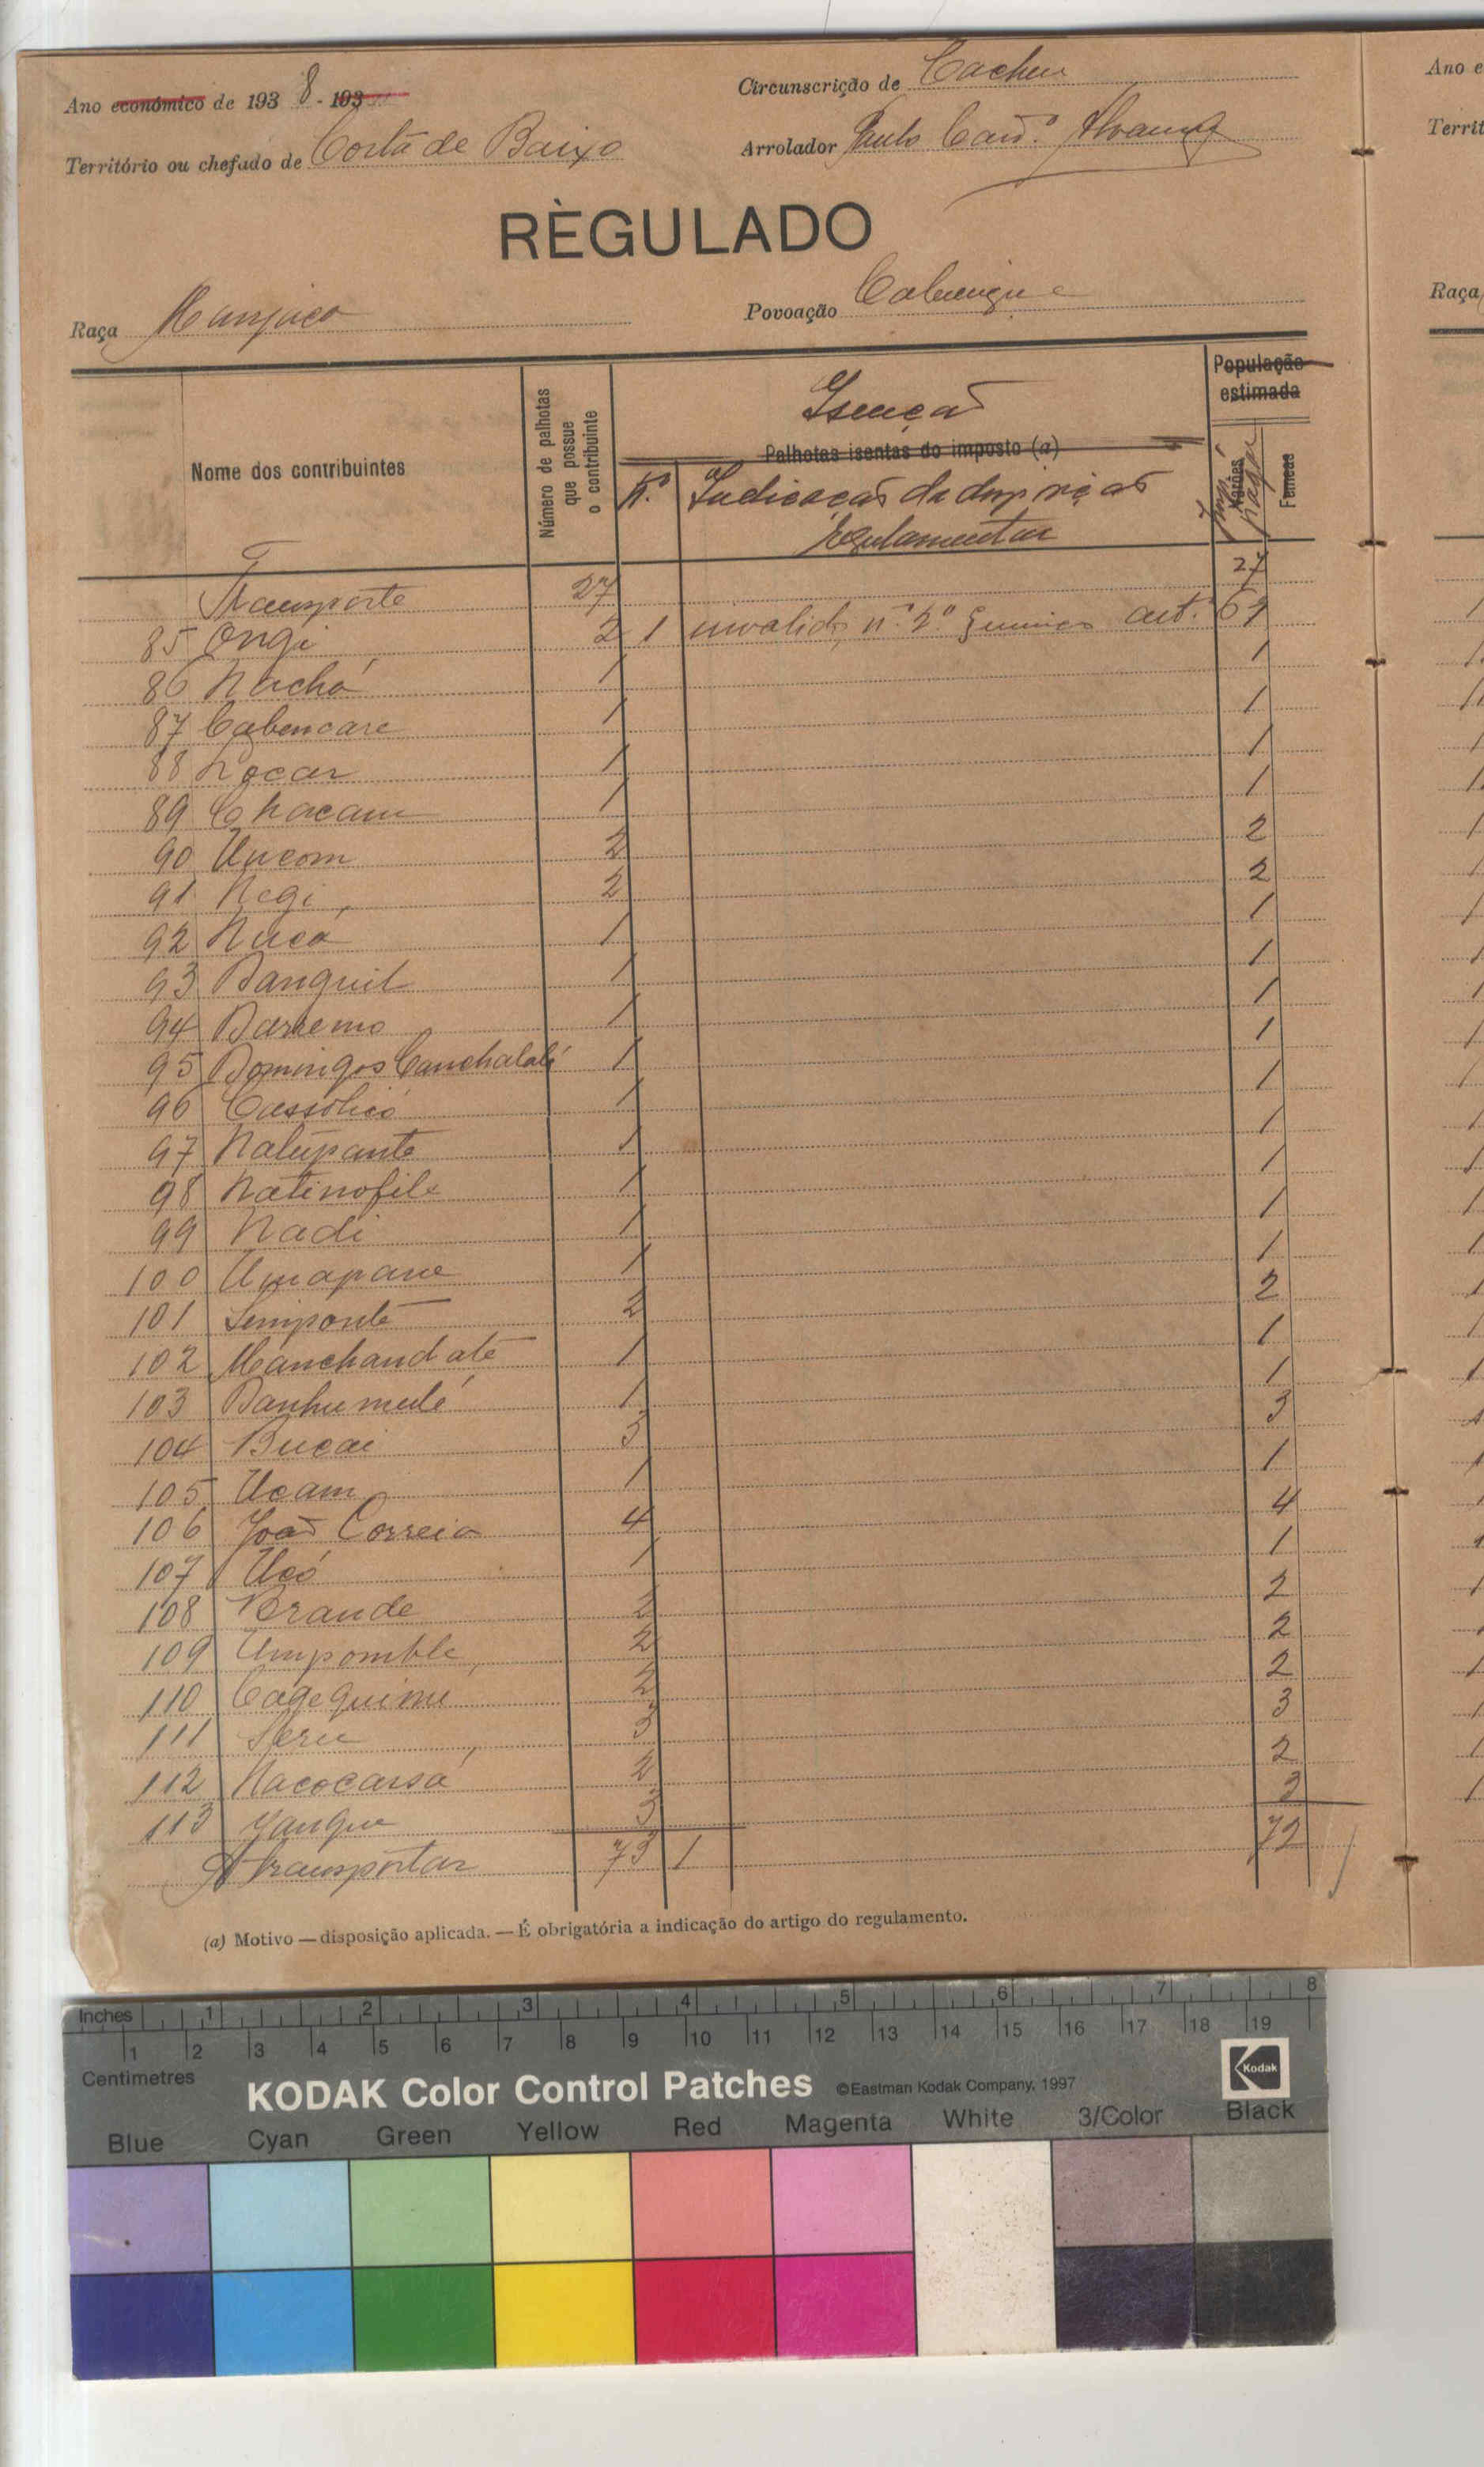 Ano económico de 193 8 - 193
Circunscrição de Cacheu
Território ou chefado de Costa de Baixo
Arrolador Paulo
RÈGULADO
Raça Manjaco
Povoação
Nome dos contribuintes
Número de palhotas que possue o contribuinte
Isenção
Palhotas isentas do imposto (a)
N.º Indicação da disposição
regulamentar
População estimada
Varões
Femeas
Imp. pagar
Transporte 27 27
85 Ongi 2 1 invalido, n.º 2.º art.º 6 1
86 Nachó 1 1
87 Cabencare 1 1
88 Nocar 1 1
89 Chacam 1 1
90 Uncom 2 2
91 Negi 2 2
92 Nucá 1 1
93 Banguil 1 1
94 Barremo 1 1
95 Domingos Canchalalé 1 1
96 Cassolicó 1 1
97 Nalupante 1 1
98 Natinofile 1 1
99 Nadi 1 1
100 Umapane 1 1
101 Simponte 2 2
102 Manchand até 1 1
103 Banhumulé 1 1
104 Bucai 3 3
105 Ucam 1 1
106 João Correia 4 4
107 Ucó 1 1
108 Brande 2 2
109 Umpomble 2 2
110 Cagequimu 2 2
111 3 3
112 Nacocarsá 2 2
113 Yangue 3 3
A transportar 73 1 72
(a) Motivo — disposição aplicada. — É obrigatória a indicação do artigo do regulamento.
Ano e
Territ
Raça
Inches 1 2 3 4 5 6 7 8
1 2 3 4 5 6 7 8 9 10 11 12 13 14 15 16 17 18 19
Centimetres
KODAK Color Control Patches ©Eastman Kodak Company, 1997 Kodak
Blue Cyan Green Yellow Red Magenta White 3/Color Black